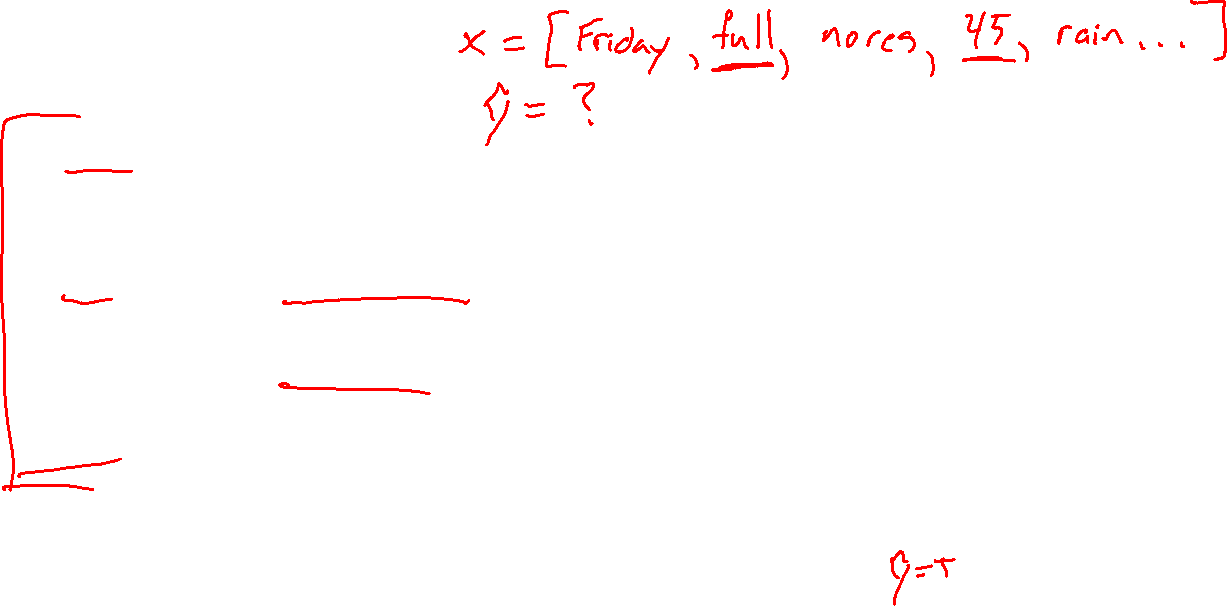 x = [Friday, full, nores, 45, rain...]
ŷ = ?
ŷ=+